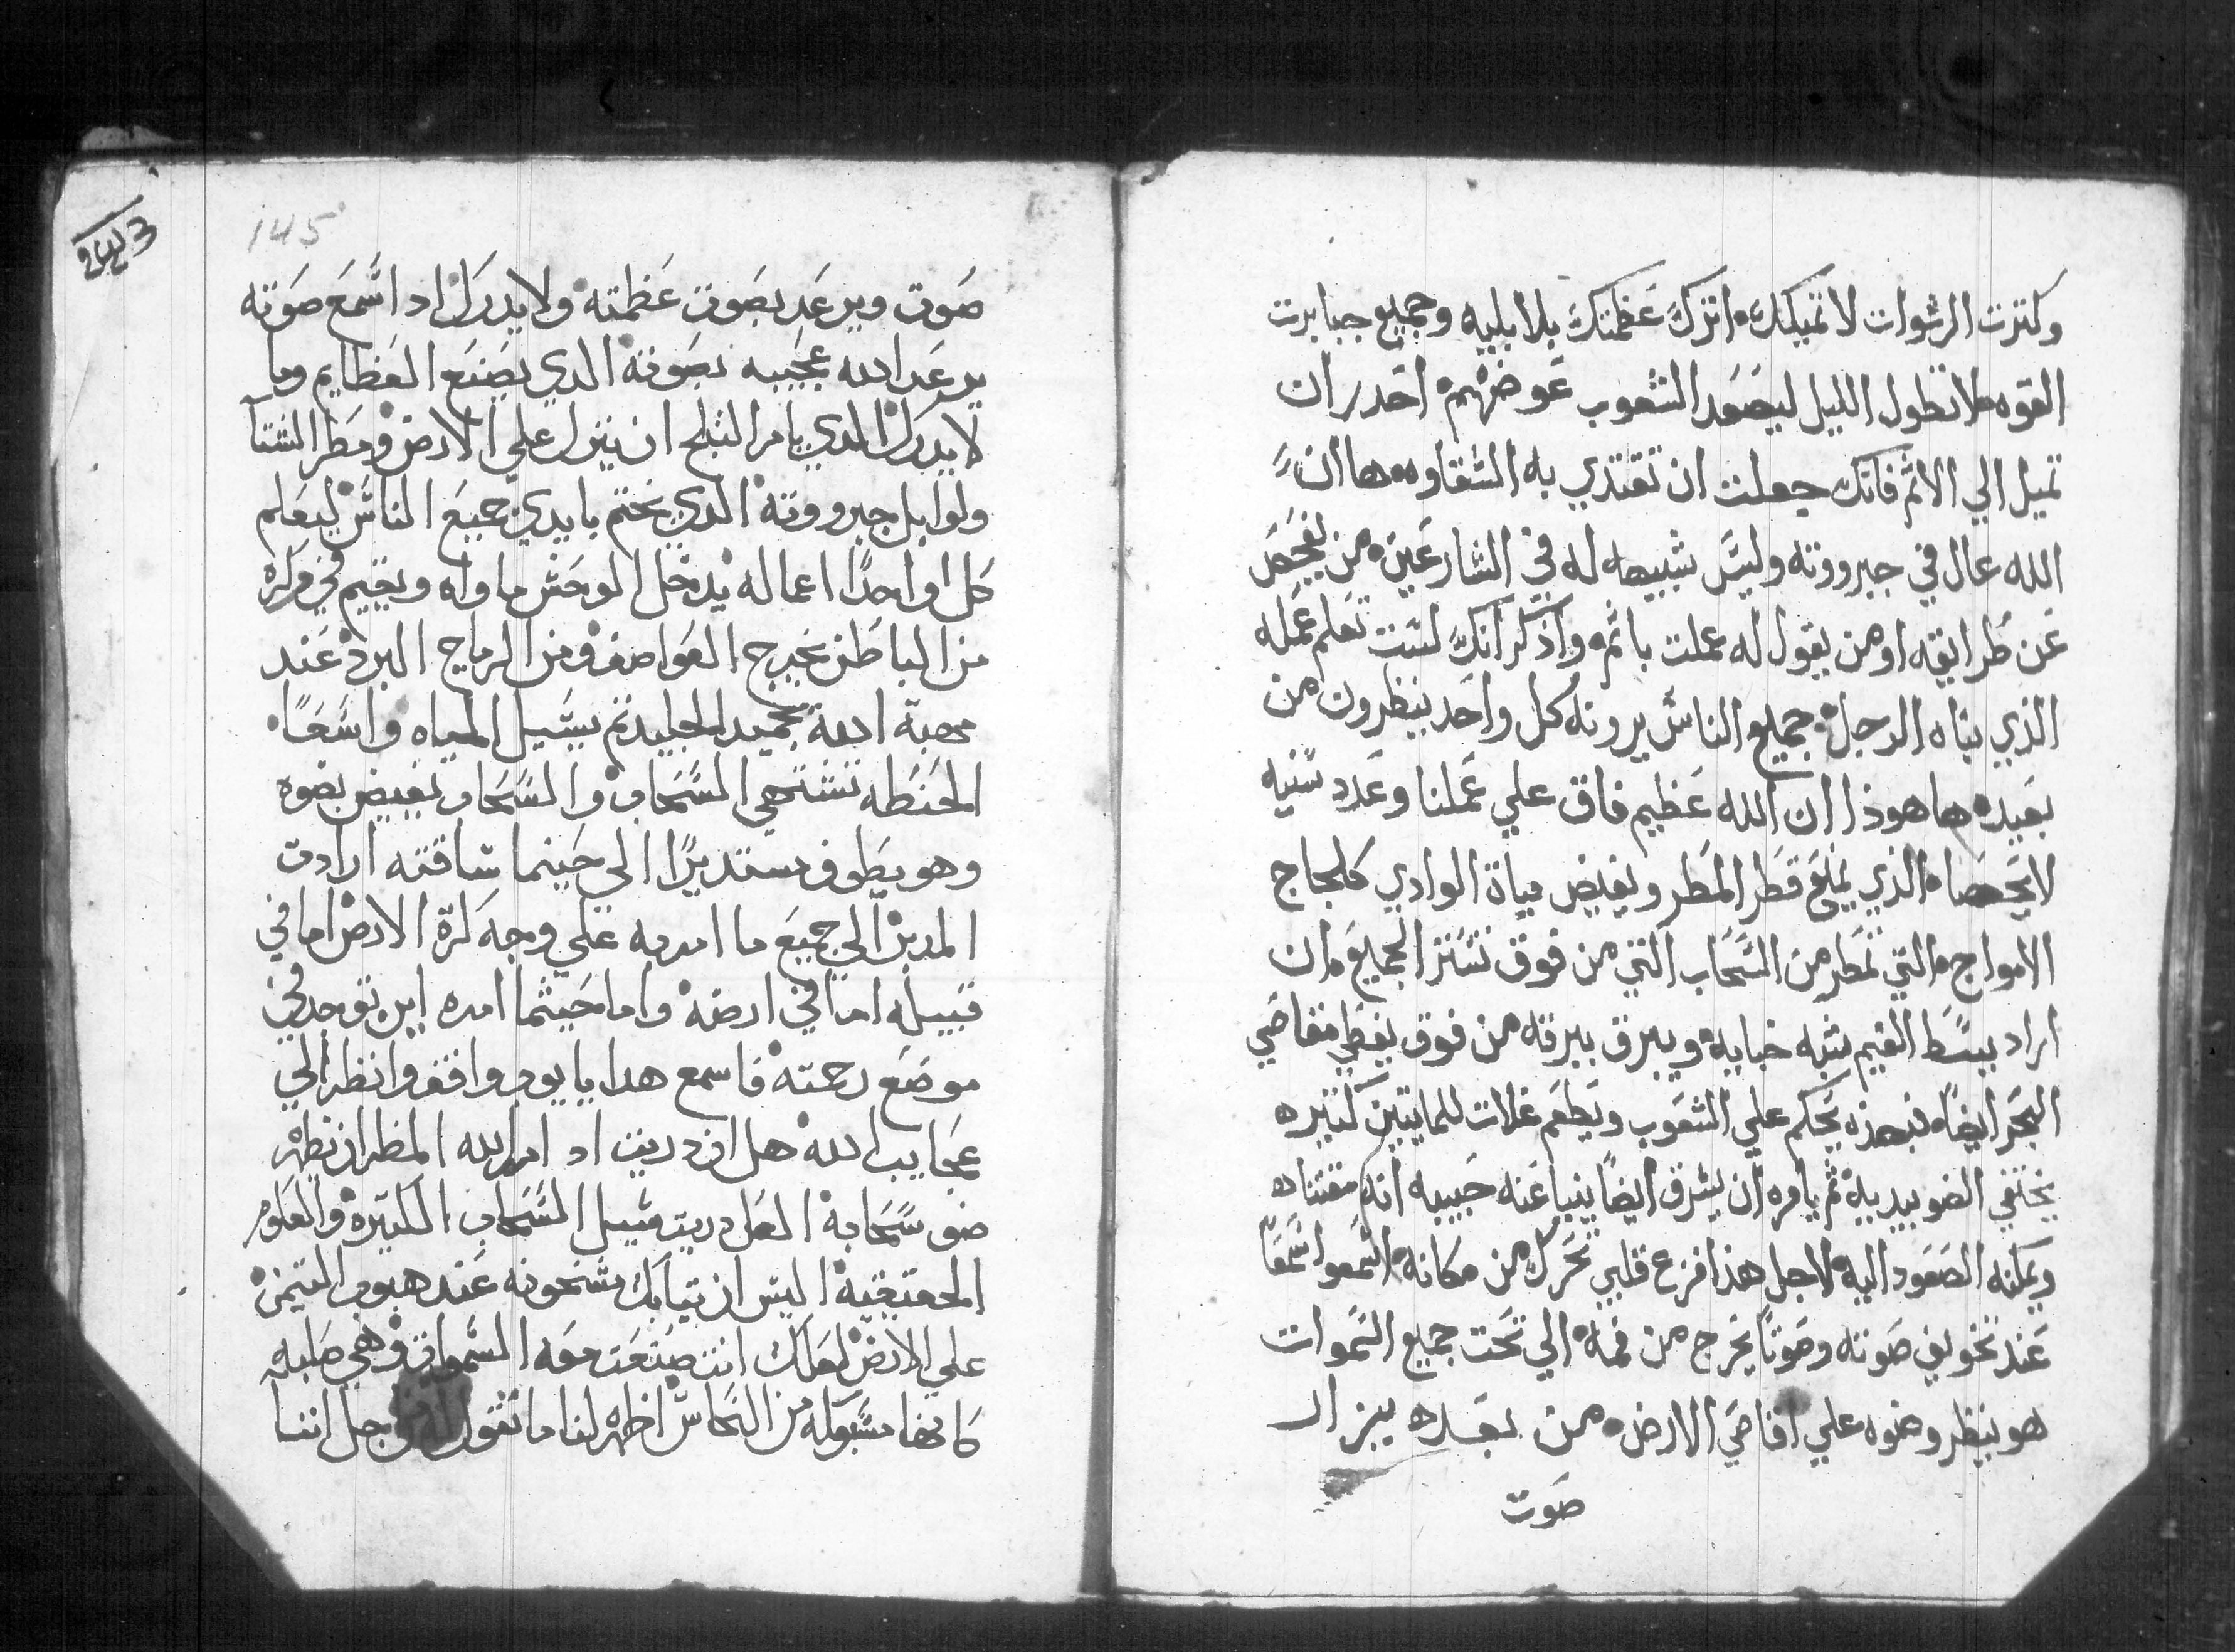 وكترت الرشوات لا تميلك، اترك عظمتك بلا بليه وجميع جبابرت
القوه، لا تطول الليل ليصعد الشعوب عوضهم، احدر ان
تميل الي الاثم فانك جعلت ان تقتدي به الشقاوه، ها ان
الله عال في جبروته وليس شبيهاً له في الشارعين، من يفحص
عن طرايقه او من يقول له عملت باثم، واذكر انك لست تعلم عمله
الذي بناه الرجل، جميع الناس يرونه كل واحد ينظرون من
بعيد، ها هوذا ان الله عظيم فاق علي عملنا وعدد سنيه
لا يحصاه الذي يمنع قطر المطر ويفيض مياة الوادي كلجاج
الامواج، التي تمطر من السحاب التي من فوق تستر الجميع، ان
اراد يبسط الغيم شبه خبايه، ويبرق ببرقه من فوق يغطي مقاصي
البحر ايضاً، فبهذه يحكم علي الشعوب ويطعم غلات للمايتين كثيره
يختفي الضو بيديه، ثم يامره ان يشرق ايضاً ينبا عنه حبيبه انه مقتناه
ويمكنه الصعود اليه، لاجل هذا فزع قلبي تحرك من مكانه، اسمعوا سمعاً
عند تخويف صوته وصوتاً يخرج من فمه، الي تحت جميع السموات
هو ينظر وضوه علي اقاصي الارض، من بعده يبزار
صوت
145
صوت ويرعد بصوت عظمته ولا يدرك اد اسمع صوته
يرعد الله عجيبه بصوته الدي يصنع العظايم وما
لا يدرك الدي يامر الثلج ان ينزل علي الارض ومطر الشتا
ولوابل جبروته الدي يختم بايدي جميع الناس ليعلم
كل اواحداً اعماله يدخل الوحش ماواه ويقيم في وكره
من الباطن يخرج العواصف ومن الرياح البرد عند
مهبة الله يجميد الجليد ثم يسيل المياه واسعاً
الحنطه تشتهي السحاب والسحاب يفيض بضوه
وهو يطوف مستديراً الي حينما ساقته ارادت
المدبر الي جميع ما امر به علي وجه كرة الارض اما في
قبيله اما في ارضه واما حيثما امره اين توجد في
موضع رحمته فاسمع هدا يا يوب واقف وانظر الي
عجايب الله هل ان دريت اد امر الله المطر ان تظهر
ضو سحابه العل دريت سبيل السحاب الكبيره والعلوم
الحقيقيه اليس ان تيابك سخونه عند هبوب التيمن
علي الارض لعلك انت صنعت معه السموات وهي صلبه
كانها مسبوكه من النحاس اظهر لنا ما نقول له من اجل اننا